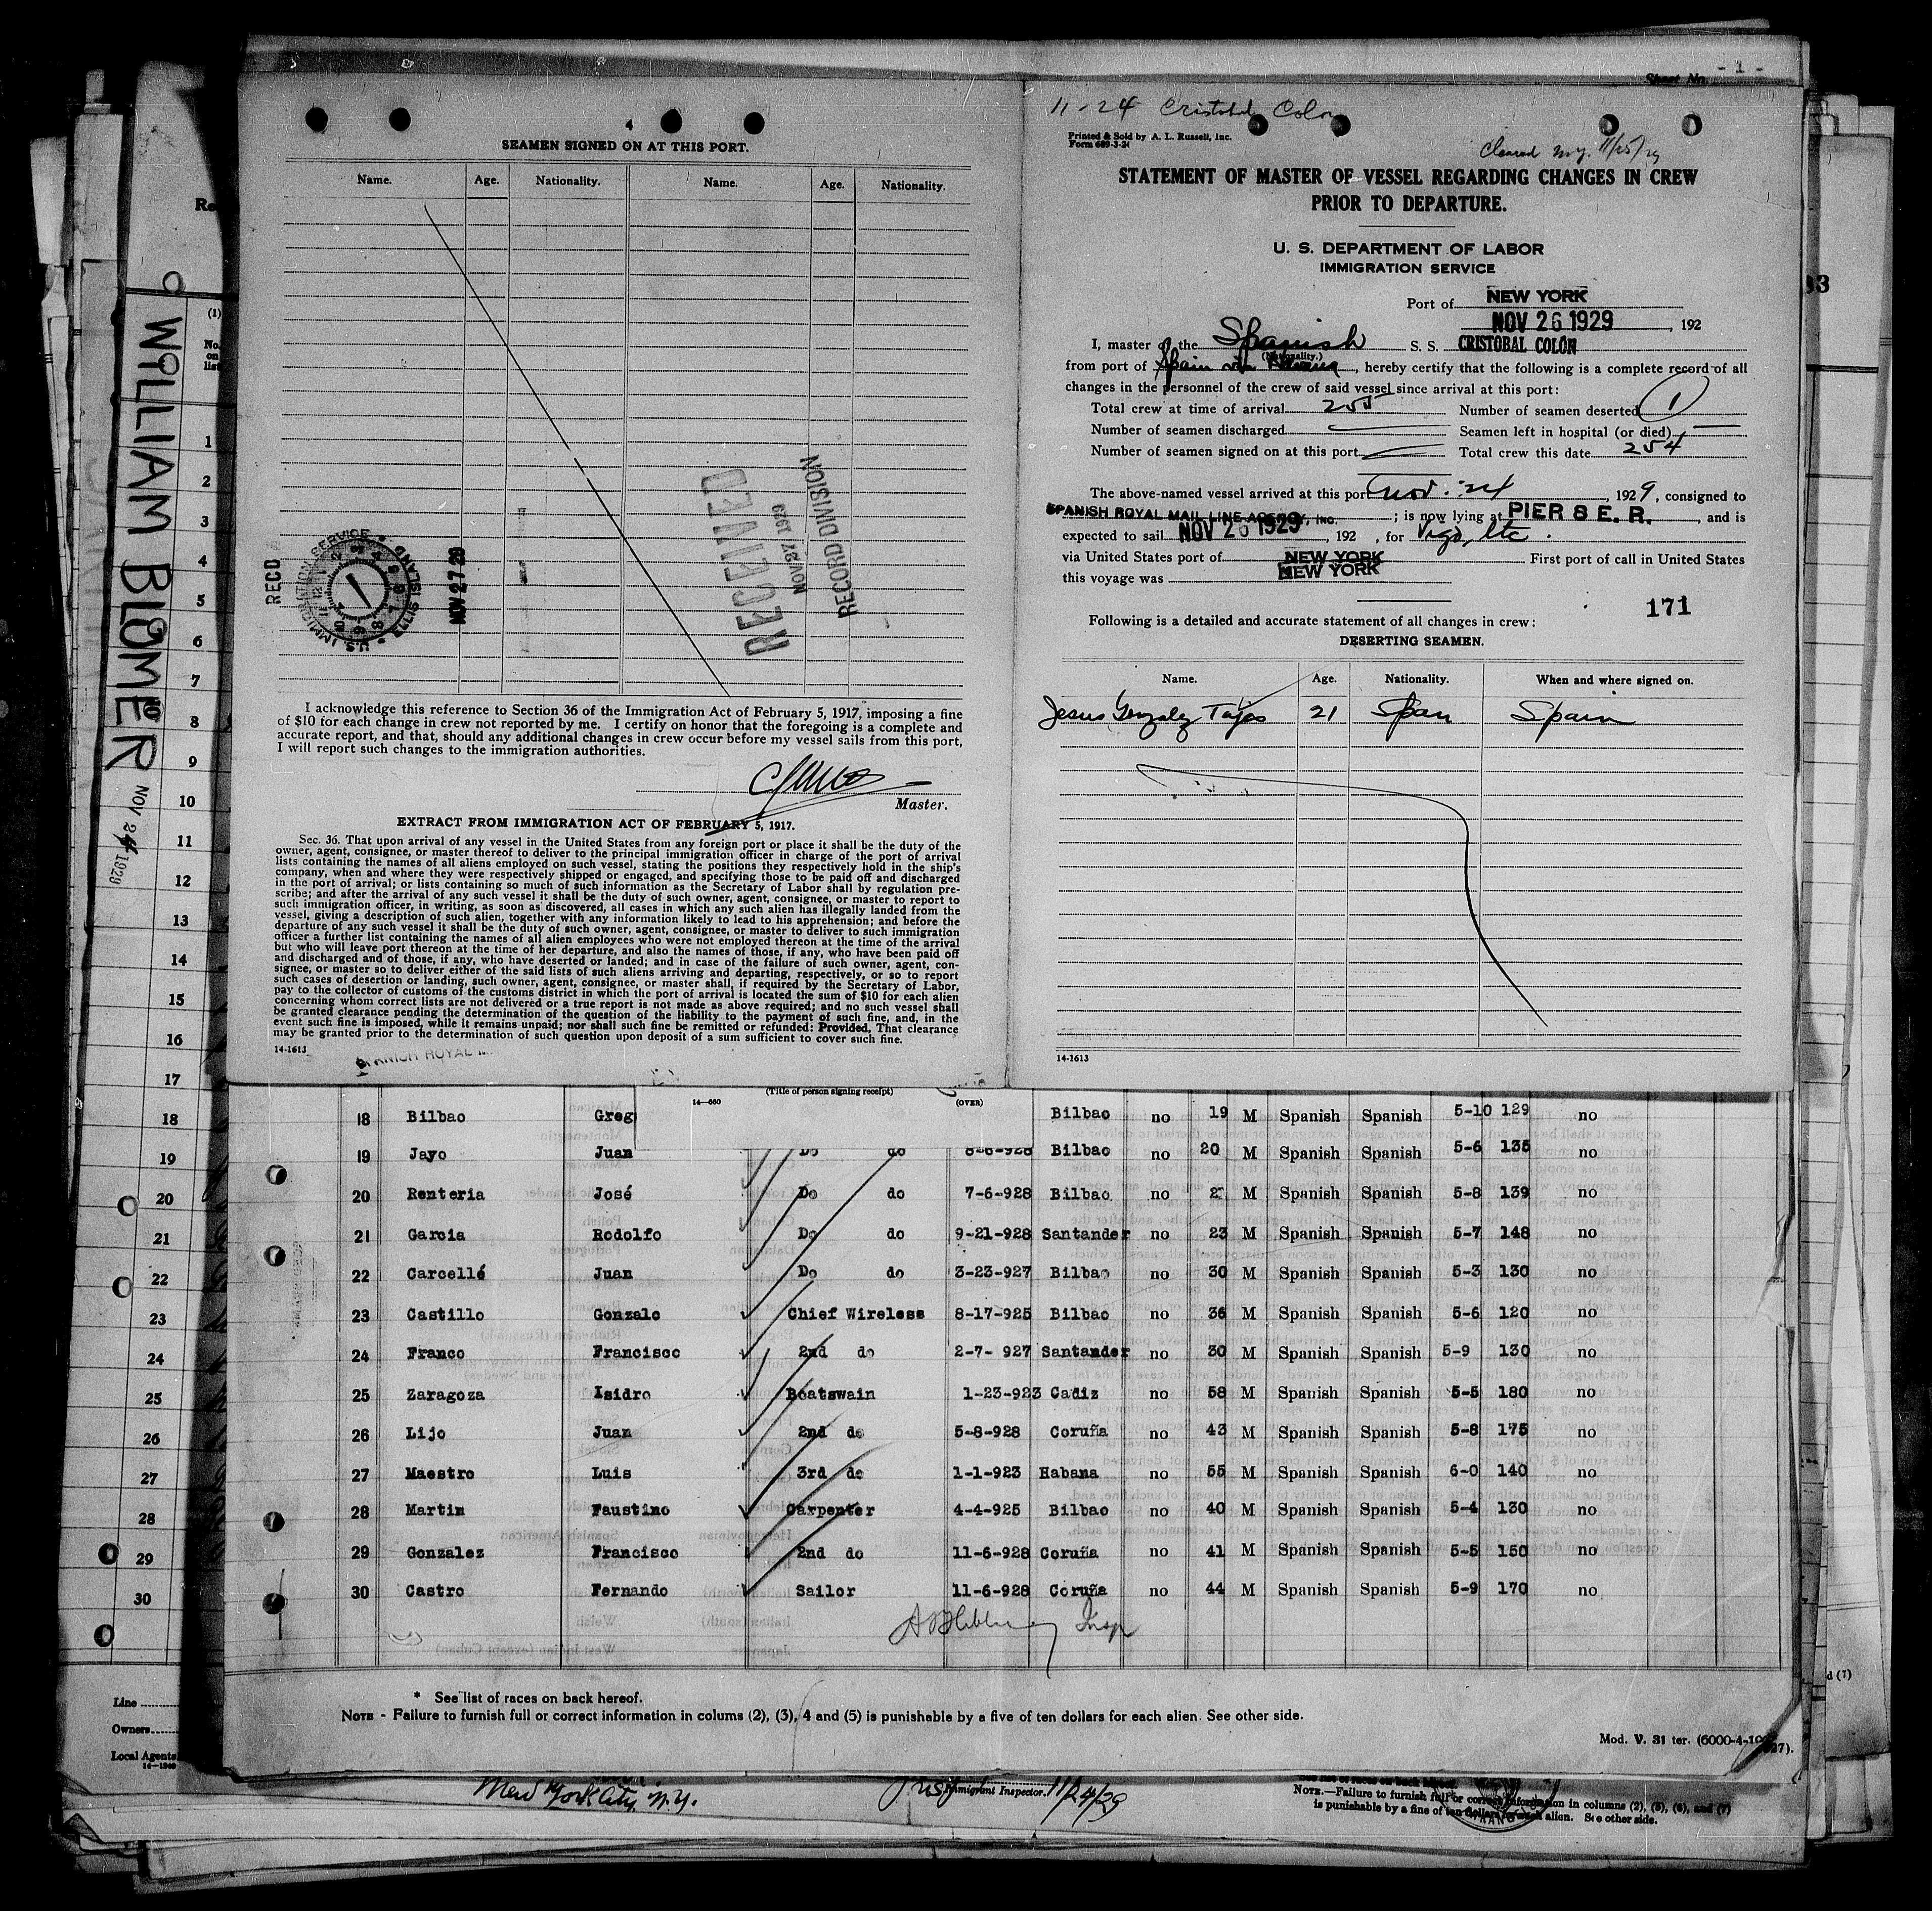 Sheet No. - 1 -
4
SEAMEN SIGNED ON AT THIS PORT.
Name. Age. Nationality. Name. Age. Nationality.
RECEIVED
NOV 27 1929
RECORD DIVISION
REC'D
U.S. IMMIGRATION SERVICE
ELLIS ISLAND
NOV 27 29
I acknowledge this reference to Section 36 of the Immigration Act of February 5, 1917, imposing a fine
of $10 for each change in crew not reported by me. I certify on honor that the foregoing is a complete and
accurate report, and that, should any additional changes in crew occur before my vessel sails from this port,
I will report such changes to the immigration authorities.
Master.
EXTRACT FROM IMMIGRATION ACT OF FEBRUARY 5, 1917.
Sec. 36. That upon arrival of any vessel in the United States from any foreign port or place it shall be the duty of the
owner, agent, consignee, or master thereof to deliver to the principal immigration officer in charge of the port of arrival
lists containing the names of all aliens employed on such vessel, stating the positions they respectively hold in the ship's
company, when and where they were respectively shipped or engaged, and specifying those to be paid off and discharged
in the port of arrival; or lists containing so much of such information as the Secretary of Labor shall by regulation pre-
scribe; and after the arrival of any such vessel it shall be the duty of such owner, agent, consignee, or master to report to
such immigration officer, in writing, as soon as discovered, all cases in which any such alien has illegally landed from the
vessel, giving a description of such alien, together with any information likely to lead to his apprehension; and before the
departure of any such vessel it shall be the duty of such owner, agent, consignee, or master to deliver to such immigration
officer a further list containing the names of all alien employees who were not employed thereon at the time of the arrival
but who will leave port thereon at the time of her departure, and also the names of those, if any, who have been paid off
and discharged and of those, if any, who have deserted or landed; and in case of the failure of such owner, agent, con-
signee, or master so to deliver either of the said lists of such aliens arriving and departing, respectively, or so to report
such cases of desertion or landing, such owner, agent, consignee, or master shall, if required by the Secretary of Labor,
pay to the collector of customs of the customs district in which the port of arrival is located the sum of $10 for each alien
concerning whom correct lists are not delivered or a true report is not made as above required; and no such vessel shall
be granted clearance pending the determination of the question of the liability to the payment of such fine, and, in the
event such fine is imposed, while it remains unpaid; nor shall such fine be remitted or refunded: Provided, That clearance
may be granted prior to the determination of such question upon deposit of a sum sufficient to cover such fine.
14-1613
11-24 Cristobal Colon
Printed & Sold by A. L. Russell, Inc.
Form 689-3-24
Cleared N.Y. 11/25/29
STATEMENT OF MASTER OF VESSEL REGARDING CHANGES IN CREW
PRIOR TO DEPARTURE.
U. S. DEPARTMENT OF LABOR
IMMIGRATION SERVICE
Port of NEW YORK
NOV 26 1929, 192
I, master of the Spanish S. S. CRISTOBAL COLON
(Nationality.)
from port of Spain via Havana, hereby certify that the following is a complete record of all
changes in the personnel of the crew of said vessel since arrival at this port:
Total crew at time of arrival 255 Number of seamen deserted 1
Number of seamen discharged Seamen left in hospital (or died)
Number of seamen signed on at this port Total crew this date 254
The above-named vessel arrived at this port Nov. 24, 1929, consigned to
SPANISH ROYAL MAIL LINE AGENCY, INC.; is now lying at PIER 8 E. R., and is
expected to sail NOV 26 1929, 192 , for Vigo, etc.
via United States port of NEW YORK First port of call in United States
this voyage was NEW YORK
171
Following is a detailed and accurate statement of all changes in crew:
DESERTING SEAMEN.
Name. Age. Nationality. When and where signed on.
Jesus Gonzalez Tajes 21 Span Spain
14-1613
(Title of person signing receipt)
14-660 (OVER)
18 Bilbao Greg Bilbao no 19 M Spanish Spanish 5-10 129 no
19 Jayo Juan Do do 8-6-928 Bilbao no 20 M Spanish Spanish 5-6 135 no
20 Renteria José Do do 7-6-928 Bilbao no M Spanish Spanish 5-8 139 no
21 Garcia Rodolfo Do do 9-21-928 Santander no 23 M Spanish Spanish 5-7 148 no
22 Carcellé Juan Do do 3-23-927 Bilbao no 30 M Spanish Spanish 5-3 130 no
23 Castillo Gonzalo Chief Wireless 8-17-925 Bilbao no 36 M Spanish Spanish 5-6 120 no
24 Franco Francisco 2nd do 2-7- 927 Santander no 30 M Spanish Spanish 5-9 130 no
25 Zaragoza Isidro Boatswain 1-23-923 Cadiz no 58 M Spanish Spanish 5-5 180 no
26 Lijo Juan 2nd do 5-8-928 Coruña no 43 M Spanish Spanish 5-8 175 no
27 Maestro Luis 3rd do 1-1-923 Habana no 55 M Spanish Spanish 6-0 140 no
28 Martin Faustino Carpenter 4-4-925 Bilbao no 40 M Spanish Spanish 5-4 130 no
29 Gonzalez Francisco 2nd do 11-6-928 Coruña no 41 M Spanish Spanish 5-5 150 no
30 Castro Fernando Sailor 11-6-928 Coruña no 44 M Spanish Spanish 5-9 170 no
Insp
* See list of races on back hereof.
NOTE - Failure to furnish full or correct information in colums (2), (3), 4 and (5) is punishable by a five of ten dollars for each alien. See other side.
Mod. V. 31 ter.
New York City, N.Y.
Immigrant Inspector. 11/24/29
NOTE.—Failure to furnish full or correct information in columns (2), (5), (6), and (7)
is punishable by a fine of ten dollars for each alien. See other side.
WILLIAM BLOMER
NOV 24 1929
(1)
No.
on
list
1
2
3
4
5
6
7
8
9
10
11
12
13
14
15
16
17
18
19
20
21
22
23
24
25
26
27
28
29
30
Line
Owners
Local Agents